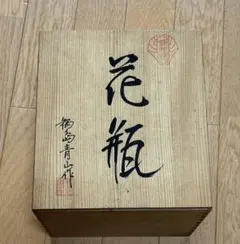 花瓶
鍋島青山作